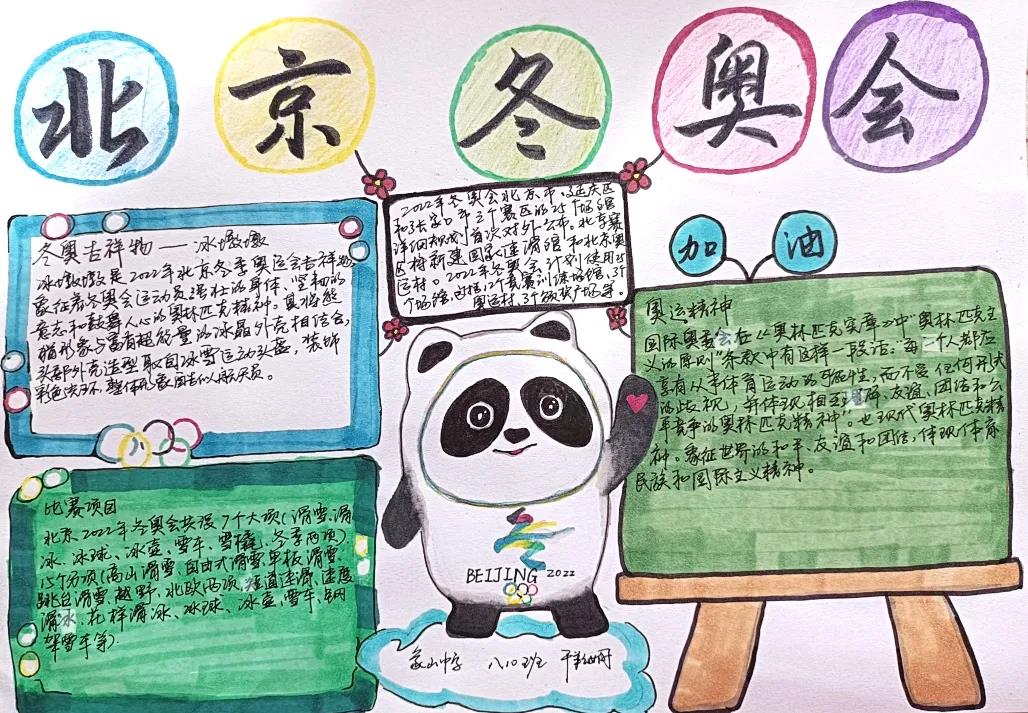 北京冬奥会
2022年冬奥会北京市、延庆区
和张家口市三个赛区的25个场馆
详细规划首次对外公布。北京赛
区将新建国家速滑馆和北京奥
运村。2022年冬奥会计划使用25
个场馆,包括,12个竞赛训练场馆,3个
奥运村,3个颁奖广场等。
冬奥吉祥物——冰墩墩
冰墩墩是2022年北京冬季奥运会吉祥物
象征着冬奥会运动员强壮的身体、坚韧的
意志和鼓舞人心的奥林匹克精神。其将熊
猫形象与富有超能量的冰晶外壳相结合,
头部外壳造型取自冰雪运动头盔,装饰
彩色光环,整体形象酷似航天员。
加油
奥运精神
国际奥委会在《奥林匹克宪章》中"奥林匹克主
义的原则"条款中有这样一段话:"每一个人都应
享有从事体育运动的可能性,而不受任何形式
的歧视,并体现相互理解、友谊、团结和公
平竞争的奥林匹克精神"。也现代奥林匹克精
神。象征世界的和平、友谊和团结,体现体育
民族和国际主义精神。
比赛项目
北京2022年冬奥会共设7个大项(滑雪、滑
冰、冰球、冰壶、雪车、雪橇、冬季两项)、
15个分项(高山滑雪、自由式滑雪、单板滑雪、
跳台滑雪、越野、北欧两项、短道速滑、速度
滑冰、花样滑冰、冰球、冰壶、雪车、钢
架雪车等)
BEIJING 2022
象山中学 八10班